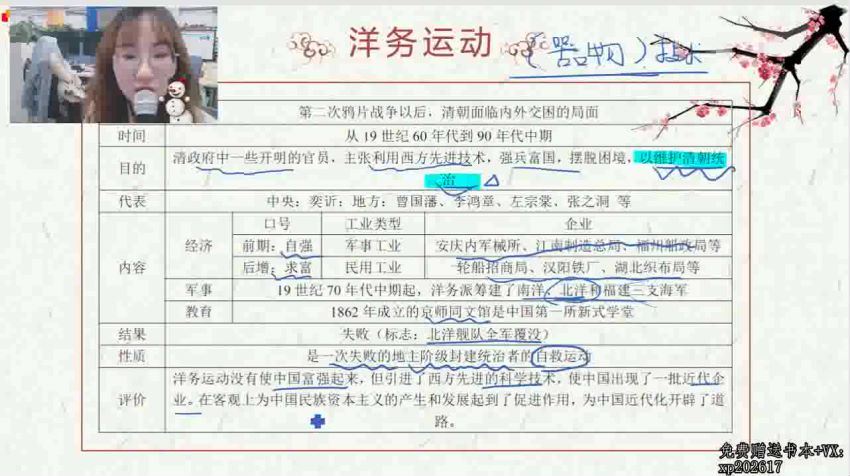 洋务运动
(器物)技术
第二次鸦片战争以后，清朝面临内外交困的局面
时间 从 19 世纪 60 年代到 90 年代中期
目的 清政府中一些开明的官员，主张利用西方先进技术，强兵富国，摆脱困境，以维护清朝统
治
代表 中央：奕䜣；地方：曾国藩、李鸿章、左宗棠、张之洞 等
内容 经济 口号 工业类型 企业
前期：自强 军事工业 安庆内军械所、江南制造总局、福州船政局等
后增：求富 民用工业 轮船招商局、汉阳铁厂、湖北织布局等
军事 19 世纪 70 年代中期起，洋务派筹建了南洋、北洋和福建三支海军
教育 1862 年成立的京师同文馆是中国第一所新式学堂
结果 失败（标志：北洋舰队全军覆没）
性质 是一次失败的地主阶级封建统治者的自救运动
评价 洋务运动没有使中国富强起来，但引进了西方先进的科学技术，使中国出现了一批近代企
业。在客观上为中国民族资本主义的产生和发展起到了促进作用，为中国近代化开辟了道
路。
免费赠送书本+VX:
xp202617